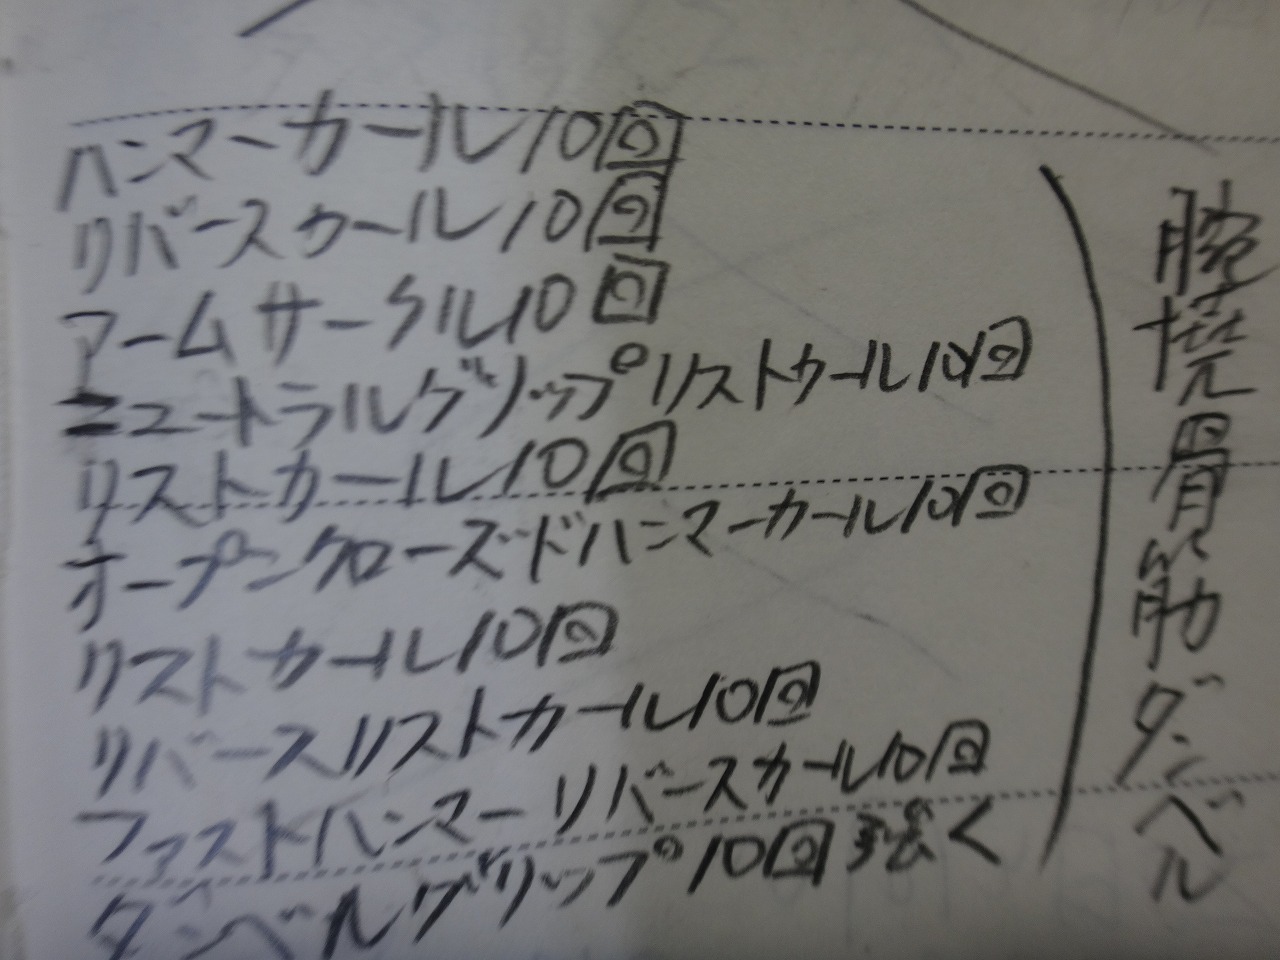 ハンマーカール10回
リバースカール10回
アームサークル10回
ニュートラルグリップリストカール10回
リストカール10回
オープンクローズドハンマーカール10回
リストカール10回
リバースリストカール10回
ファストハンマーリバースカール10回
ダンベルグリップ10回強く
腕橈骨筋ダンベル